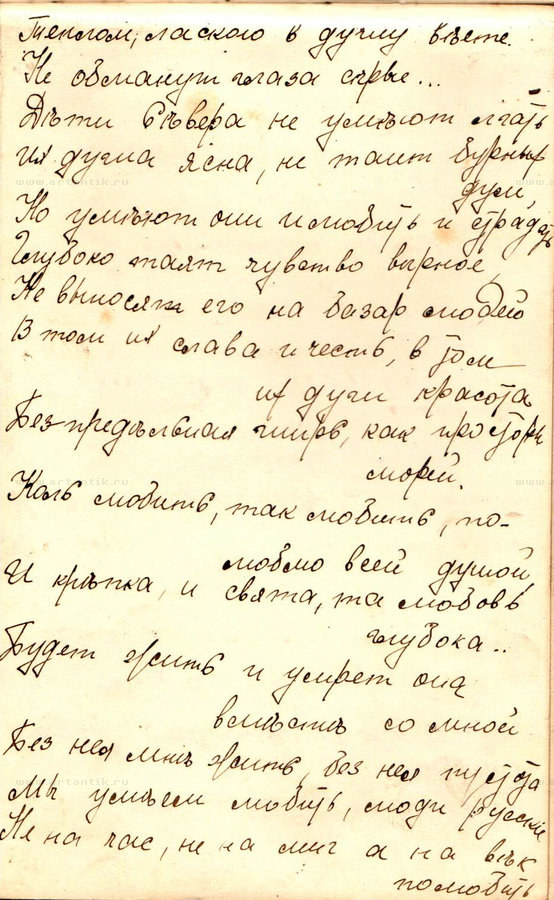 Теплом, ласкою в душу вѣете.
Не обманут глаза сѣрые...
Дѣти Сѣвера не умѣют лгать
Их душа ясна, не таит бурных
дум,
Но умѣют они и любить и страдать
Глубоко таят чувство вѣрное,
Не выносят его на базар людей
В том их слава и честь, в том
их души красота
Безпредѣльная ширь, как просторы
морей.
Коль любить, так любить, по-
люблю всей душой,
И крѣпка, и свята, та любовь
глубока..
Будет жить и умрет она
вмѣстѣ со мной
Без нея мнѣ жить, без нея пустота
Мы умѣем любить, люди русскіе
Не на час, не на миг а на вѣк
полюбить